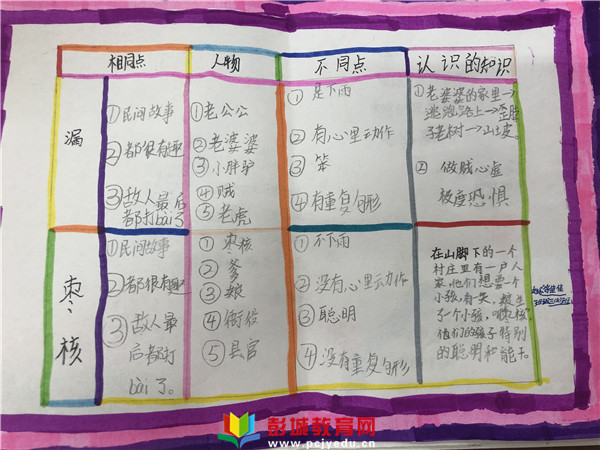 相同点
人物
不同点
认识的知识
漏
①民间故事
②都很有趣
③敌人最后
都打bài了
①老公公
②老婆婆
③小胖驴
④贼
⑤老虎
①是下雨
②有心里动作
③笨
④有重复句形
①老婆婆的家里→
逃跑路上→歪脖
子老树→山坡
②做贼心虚
极度恐惧
枣核
①民间故事
②都很有趣
③敌人最
后都打
bài了。
①枣核
②爹
③娘
④衙役
⑤县官
①不下雨
②没有心里动作
③聪明
④没有重复句形
在山脚下的一个
村庄里有一户人
家,他们想要一个
小孩,有天,娘生
了一个小孩,叫枣核
他们的孩子特别
的聪明和能干。
彭城教育网
www.pcjyedu.cn